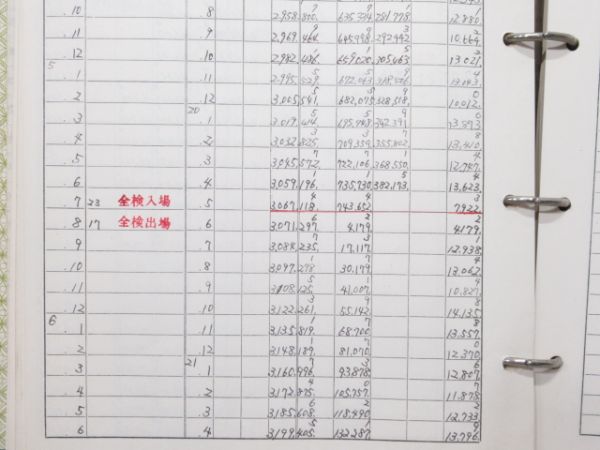 .10 .8 2,958,800. 635,334 281,778 12,880
.11 .9 2,969,464. 645,998 292,442 10,664
.12 .10 2,982,486. 659,020 305,463 13,021
5 .1 .11
.2 .12 3,005,541. 682,075 328,518 10,012
.3 20 .1
.4 .2 3,032,825. 709,359 13,410
.5 .3 3,045,572. 722,106 368,550 12,747
.6 .4 3,059,196. 735,730 382,173 13,623
.7 23 全検入場 .5 3,067,118. 743,652 7,922
.8 17 全検出場 .6 3,071,297. 4,179 4,179
.9 .7 3,084,235. 17,117 12,938
.10 .8 3,097,298. 30,179 13,062
.11 .9 3,108,125. 41,007 10,827
.12 .10 3,122,261. 55,142 14,135
6 .1 .11 3,135,819. 68,700 13,557
.2 .12 3,148,189. 81,070 12,370
.3 21 .1 3,160,996. 93,878 12,807
.4 .2 3,172,875. 105,757 11,878
.5 .3 3,185,608. 118,490 12,733
.6 .4 3,199,405. 132,287 13,796